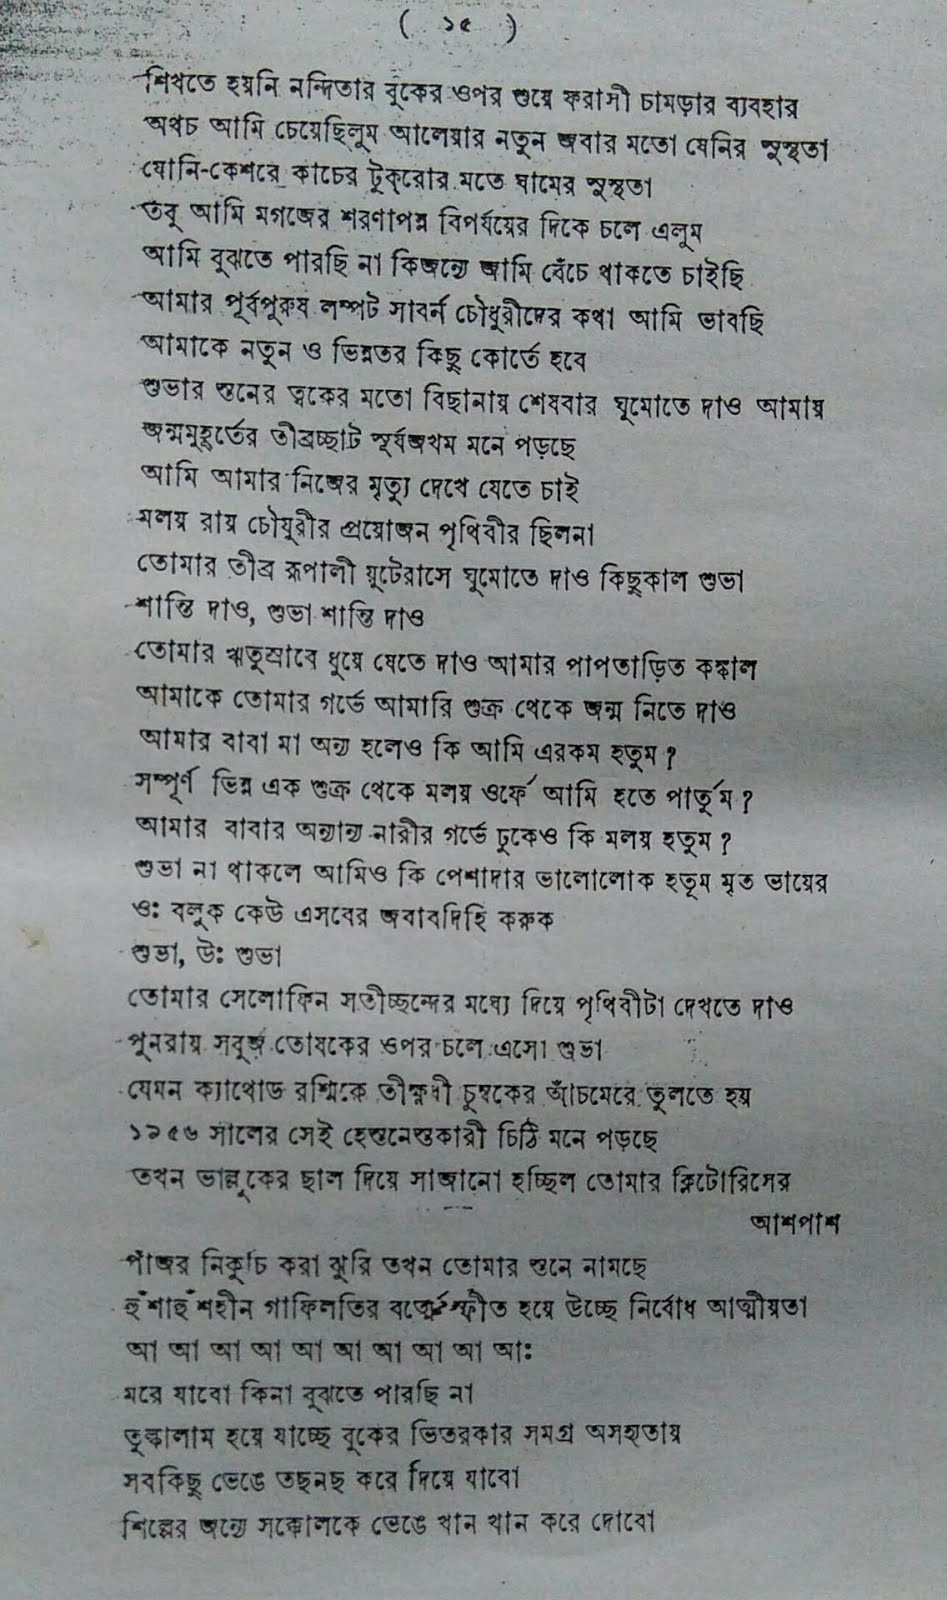 ( ১৫ )
শিখতে হয়নি নন্দিতার বুকের ওপর শুয়ে ফরাসী চামড়ার ব্যবহার
অথচ আমি চেয়েছিলুম আলেয়ার নতুন জবার মতো যোনির সুস্থতা
যোনি-কেশরে কাচের টুক্‌রোর মতে ঘামের সুস্থতা
তবু আমি মগজের শরণাপন্ন বিপর্যয়ের দিকে চলে এলুম
আমি বুঝতে পারছি না কিজন্যে আমি বেঁচে থাকতে চাইছি
আমার পূর্বপুরুষ লম্পট সাবর্ন চৌধুরীদের কথা আমি ভাবছি
আমাকে নতুন ও ভিন্নতর কিছু কোর্তে হবে
শুভার স্তনের ত্বকের মতো বিছানায় শেষবার ঘুমোতে দাও আমায়
জন্মমুহূর্তের তীব্রচ্ছাট সূর্যজখম মনে পড়ছে
আমি আমার নিজের মৃত্যু দেখে যেতে চাই
মলয় রায় চৌধুরীর প্রয়োজন পৃথিবীর ছিলনা
তোমার তীব্র রূপালী য়ুটেরাসে ঘুমোতে দাও কিছুকাল শুভা
শান্তি দাও, শুভা শান্তি দাও
তোমার ঋতুস্রাবে ধুয়ে যেতে দাও আমার পাপতাড়িত কঙ্কাল
আমাকে তোমার গর্ভে আমারি শুক্র থেকে জন্ম নিতে দাও
আমার বাবা মা অন্য হলেও কি আমি এরকম হতুম ?
সম্পূর্ণ ভিন্ন এক শুক্র থেকে মলয় ওর্ফে আমি হতে পার্তুম ?
আমার বাবার অন্যান্য নারীর গর্ভে ঢুকেও কি মলয় হতুম ?
শুভা না থাকলে আমিও কি পেশাদার ভালোলোক হতূম মৃত ভায়ের
ও: বলুক কেউ এসবের জবাবদিহি করুক
শুভা, উ: শুভা
তোমার সেলোফিন সতীচ্ছদের মধ্যে দিয়ে পৃথিবীটা দেখতে দাও
পুনরায় সবুজ তোষকের ওপর চলে এসো শুভা
যেমন ক্যাথোড রশ্মিকে তীক্ষ্ণধী চুম্বকের আঁচমেরে তুলতে হয়
১৯৫৬ সালের সেই হেস্তনেস্তকারী চিঠি মনে পড়ছে
তখন ভাল্লুকের ছাল দিয়ে সাজানো হচ্ছিল তোমার ক্লিটোরিসের
আশপাশ
পাঁজর নিকুচি করা ঝুরি তখন তোমার স্তনে নামছে
হুঁশাহুঁশহীন গাফিলতির বর্ত্মে স্ফীত হয়ে উঠছে নির্বোধ আত্মীয়তা
আ আ আ আ আ আ আ আ আ আ:
মরে যাবো কিনা বুঝতে পারছি না
তুল্কালাম হয়ে যাচ্ছে বুকের ভিতরকার সমগ্র অসহ্যতায়
সবকিছু ভেঙে তছনছ করে দিয়ে যাবো
শিল্পের জন্যে সক্কোলকে ভেঙে খান খান করে দোবো